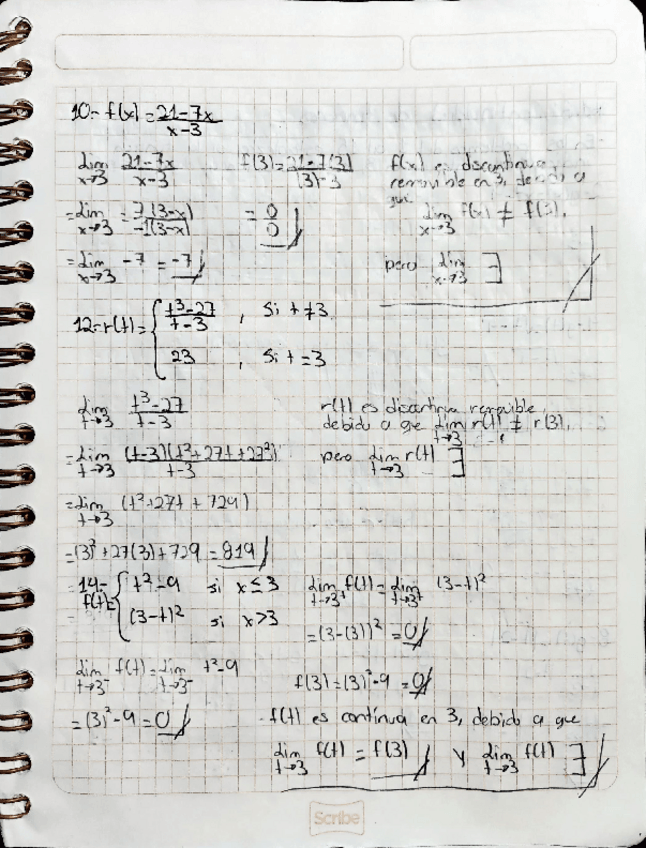 10- f(x) = 21-7x / x-3
lim x→3 21-7x / x-3
f(3) = 21-7(3) / (3)-3
= lim x→3 7(3-x) / -1(3-x)
= 0/0
= lim x→3 -7 = -7
f(x) es discontinua
removible en 3, debido a
que
lim x→3 f(x) ≠ f(3),
pero lim x→3 ∃
12- r(t) = { t³-27 / t-3 , si t ≠ 3
23 , si t = 3
lim t→3 t³-27 / t-3
= lim t→3 (t-3)(t²+27t+27²) / t-3
= lim t→3 (t²+27t+729)
= (3)²+27(3)+729 = 819
r(t) es discontinua removible,
debido a que lim t→3 r(t) ≠ r(3),
pero lim t→3 r(t) ∃
14- f(t) = { t²-9 si x ≤ 3
(3-t)² si x > 3
lim t→3⁻ f(t) = lim t→3⁻ t²-9
= (3)²-9 = 0
lim t→3⁺ f(t) = lim t→3⁺ (3-t)²
= (3-(3))² = 0
f(3) = (3)²-9 = 0
f(t) es contínua en 3, debido a que
lim t→3 f(t) = f(3) y lim t→3 f(t) ∃
Scribe